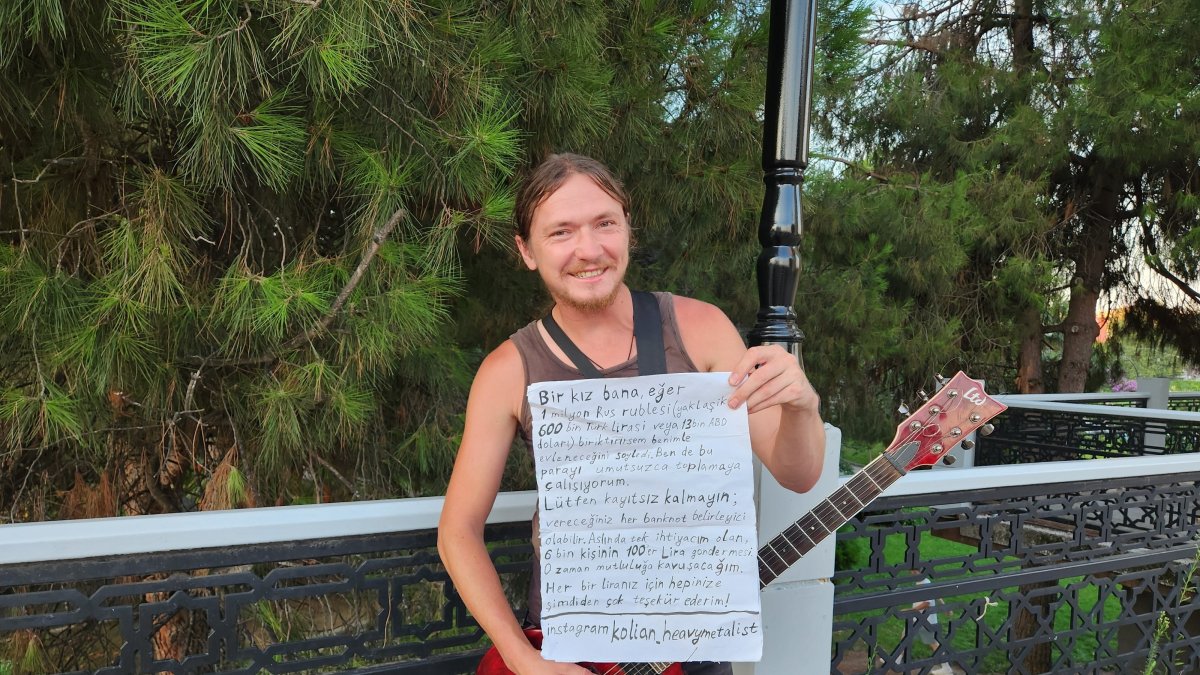 Bir kız bana, eğer
1 milyon Rus rublesi (yaklaşık
600 bin Türk lirası veya 13 bin ABD
doları) biriktirirsem benimle
evleneceğini söyledi. Ben de bu
parayı umutsuzca toplamaya
çalışıyorum.
Lütfen kayıtsız kalmayın;
vereceğiniz her banknot belirleyici
olabilir. Aslında tek ihtiyacım olan,
6 bin kişinin 100'er Lira göndermesi.
O zaman mutluluğa kavuşacağım.
Her bir liranız için hepinize
şimdiden çok teşekür ederim!
instagram kolian_heavymetalist
Ltd